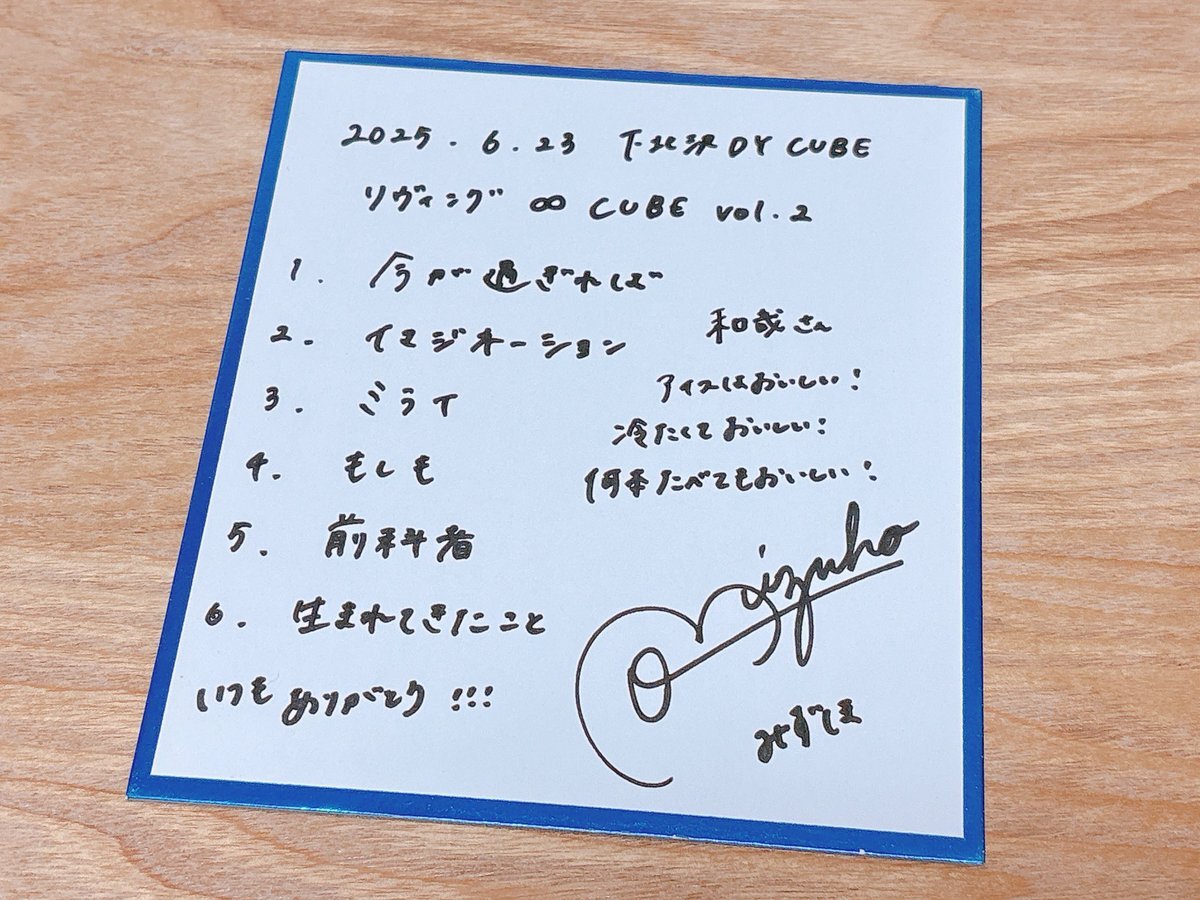 2025.6.23 下北沢DY CUBE
リヴィング ∞ CUBE vol.2
1. 今が過ぎれば
2. イマジネーション
3. ミライ
4. もしも
5. 前科者
6. 生まれてきたこと
いつもありがとう!!!
和哉さん
アイスはおいしい!
冷たくておいしい!
何本たべてもおいしい!
Mizuho
みずしま